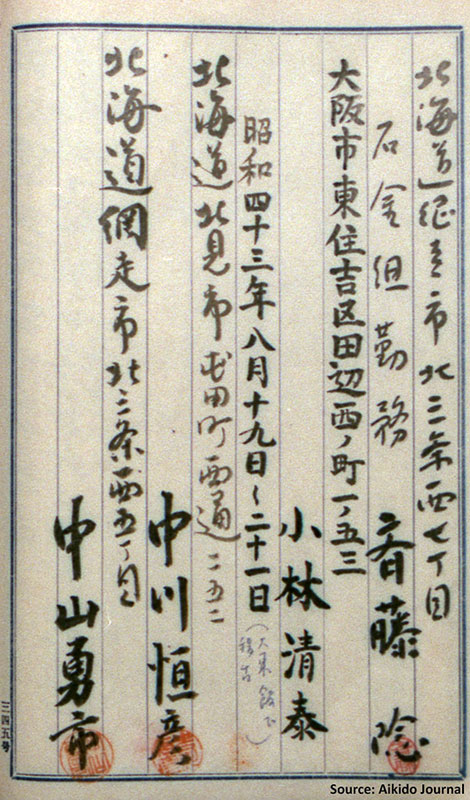 北海道 市北三条西七丁目
石倉組勤務
斉藤
大阪市東住吉区田辺西ノ町一ノ五三
小林清泰
昭和四十三年八月十九日〜二十一日
(大東館ニテ
稽古)
北海道北見市屯田町西通二五二
中川恒彦
北海道網走市北三条西五丁目
中山勇市
三四五号
Source: Aikido Journal